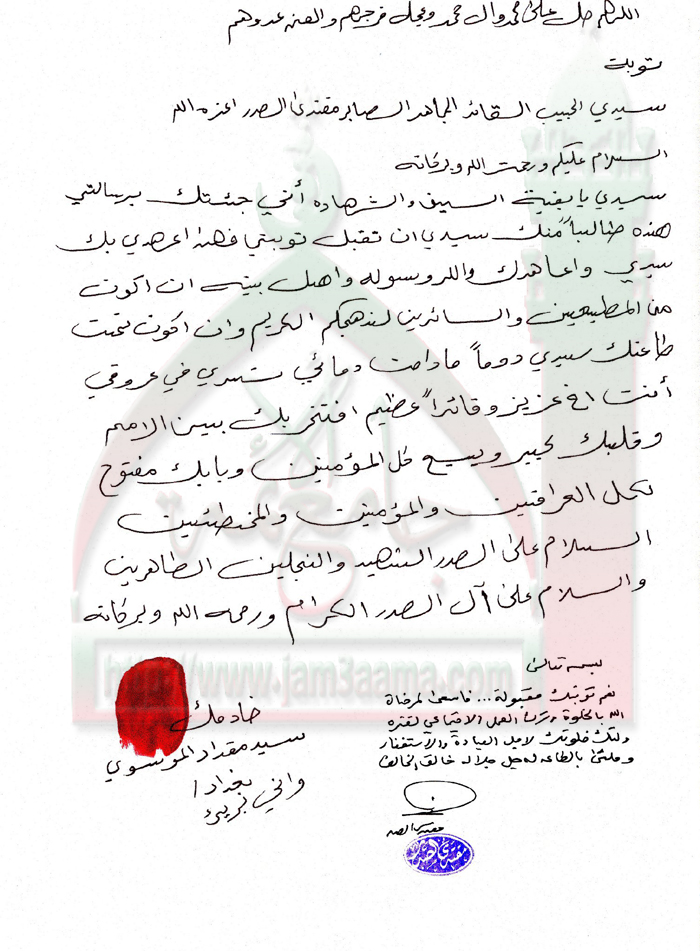 اللهم صل على محمد وال محمد وعجل فرجهم والعن عدوهم
توبت
سيدي الحبيب القائد المجاهد الصابر مقتدى الصدر اعزه الله
السلام عليكم ورحمت الله وبركاته
سيدي يا بقية السيف والشهاده أني جئتك برسالتي
هذه طالباً منك سيدي ان تقبل توبتي فهنا اعهدي بك
سيدي واعاهدك والله ورسوله واهل بيته ان اكون
من المطيعين والسائرين لنهجكم الكريم وان اكون تحت
طاعتك سيدي دوماً مادامت دمائي تسري في عروقي
أنت اخ عزيز وقائداً عظيم افتخر بك بين الامم
وقلبك كبير ويسع كل المؤمنين وبابك مفتوح
لكل العراقين والمؤمنين والمخطئين
السلام على الصدر الشهيد والنجلين الطاهرين
والسلام على آل الصدر الكرام ورحمه الله وبركاته
خادمك
سيد مقداد الموسوي
بغداد /
واني بريئ
بسمه تعالى
نعم توبتك مقبولة... فاسعى لمرضاة
الله بالخلوة وترك العمل الاجتماعي لفتره
ولتك خلوتك لاجل العبادة والاستغفار
بالطاعه له جل جلاله خالق الخالق
مقتدى الصدر
جامع
http://www.jam3aama.com